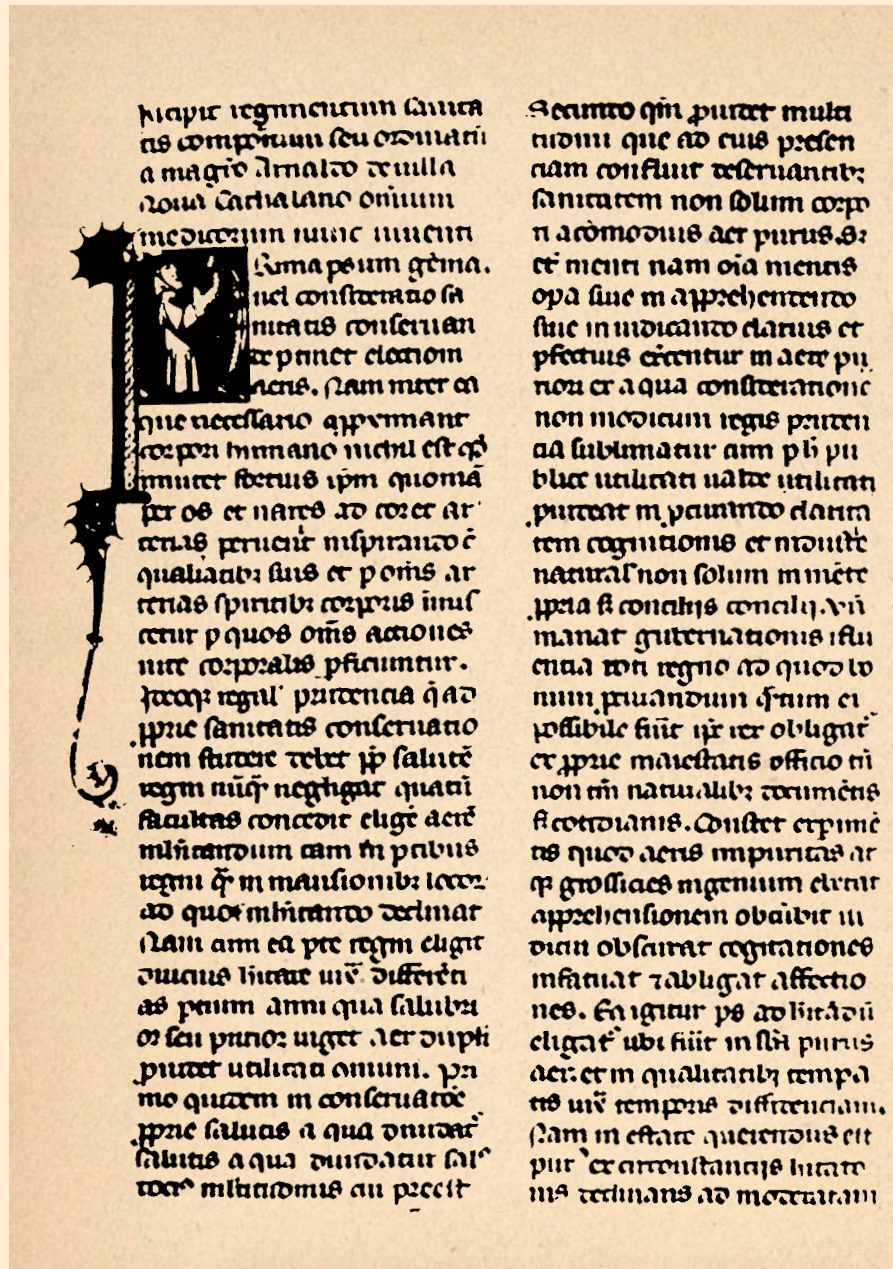 Incipit regimentum sanita
tis compoītum seu ordinatū
a magrō Arnaldo de uilla
noua Cathalano omīum
medicorum nunc uiuenti
Rima ps um gēma.
uel consideratio sa
nitatis conseruan
de ptinet electiom
aeris. Nam inter ea
que necessario appximant
corpori humano nichil est qd̄
inmutet fortius ipm quoniā
per os et nares ad cor et ar
terias peruenit inspirando ē
qualitatibȝ suis et p om̄s ar
terias spiritibȝ corporis
cetur p quos om̄s actiones
uite corporalis pficiuntur.
Ideoqȝ regal' prudencia q̄ ad
pprie sanitatis conseruatio
nem studere debet pp salutē
regni nūqȝ negligat quatū
facultas concedit eligē aerē
inhitandum tam in ptibus
regni q̄ in mansionibȝ
ad quos inhitando declinat
Nam cum ea pte regni eligit
diucius hitare differēti
as ptium anni qua salubri
or seu purior uiget aer dupli
prudet utilitati omium. Pri
mo quidem in conseruatōe
pprie salutis a qua
salutis a qua diuidatur
Secundo qm̄ prudet multi
tudini que ad eius presen
ciam confluit deseruantibȝ
sanitatem non solum corpo
ri acōmodius aer purus. Sȝ
et menti nam oīa mentis
opa siue in apprehendendo
siue in iudicando clarius et
pfectius exercentur in aere pu
riori et a qua consideratione
non modicum regis pruden
cia sublimatur cum pli pu
blice utilitati ualde utilitati
prudeat in pcurando clarita
tem cognitionis et industē
naturas non solum in mēte
ppria sȝ conciliis concilij. vn̄
manat gubernationis iflu
encia toti regno ad quod bo
num pcurandum q̄ntum ei
possibile fiūt ipē rex obligat̄
et pprie maiestatis officio cū
non tm̄ naturalibȝ documētis
sȝ cotidianis. Constet expimē
tis quod aeris impuritas at
qȝ grossicies ingenium ebetat
apprehensionem obnubit iu
dicium obscurat cogitationes
infatuat ⁊ abligat affectio
nes. Ea igitur ps ad hitādū
eligat̄ ubi fiūt purus
aer. et in qualitatibȝ tempa
tis temporis differenciam.
Nam in estate querendus est
pur et circunstanciis hitatō
nis declinans ad moderatam